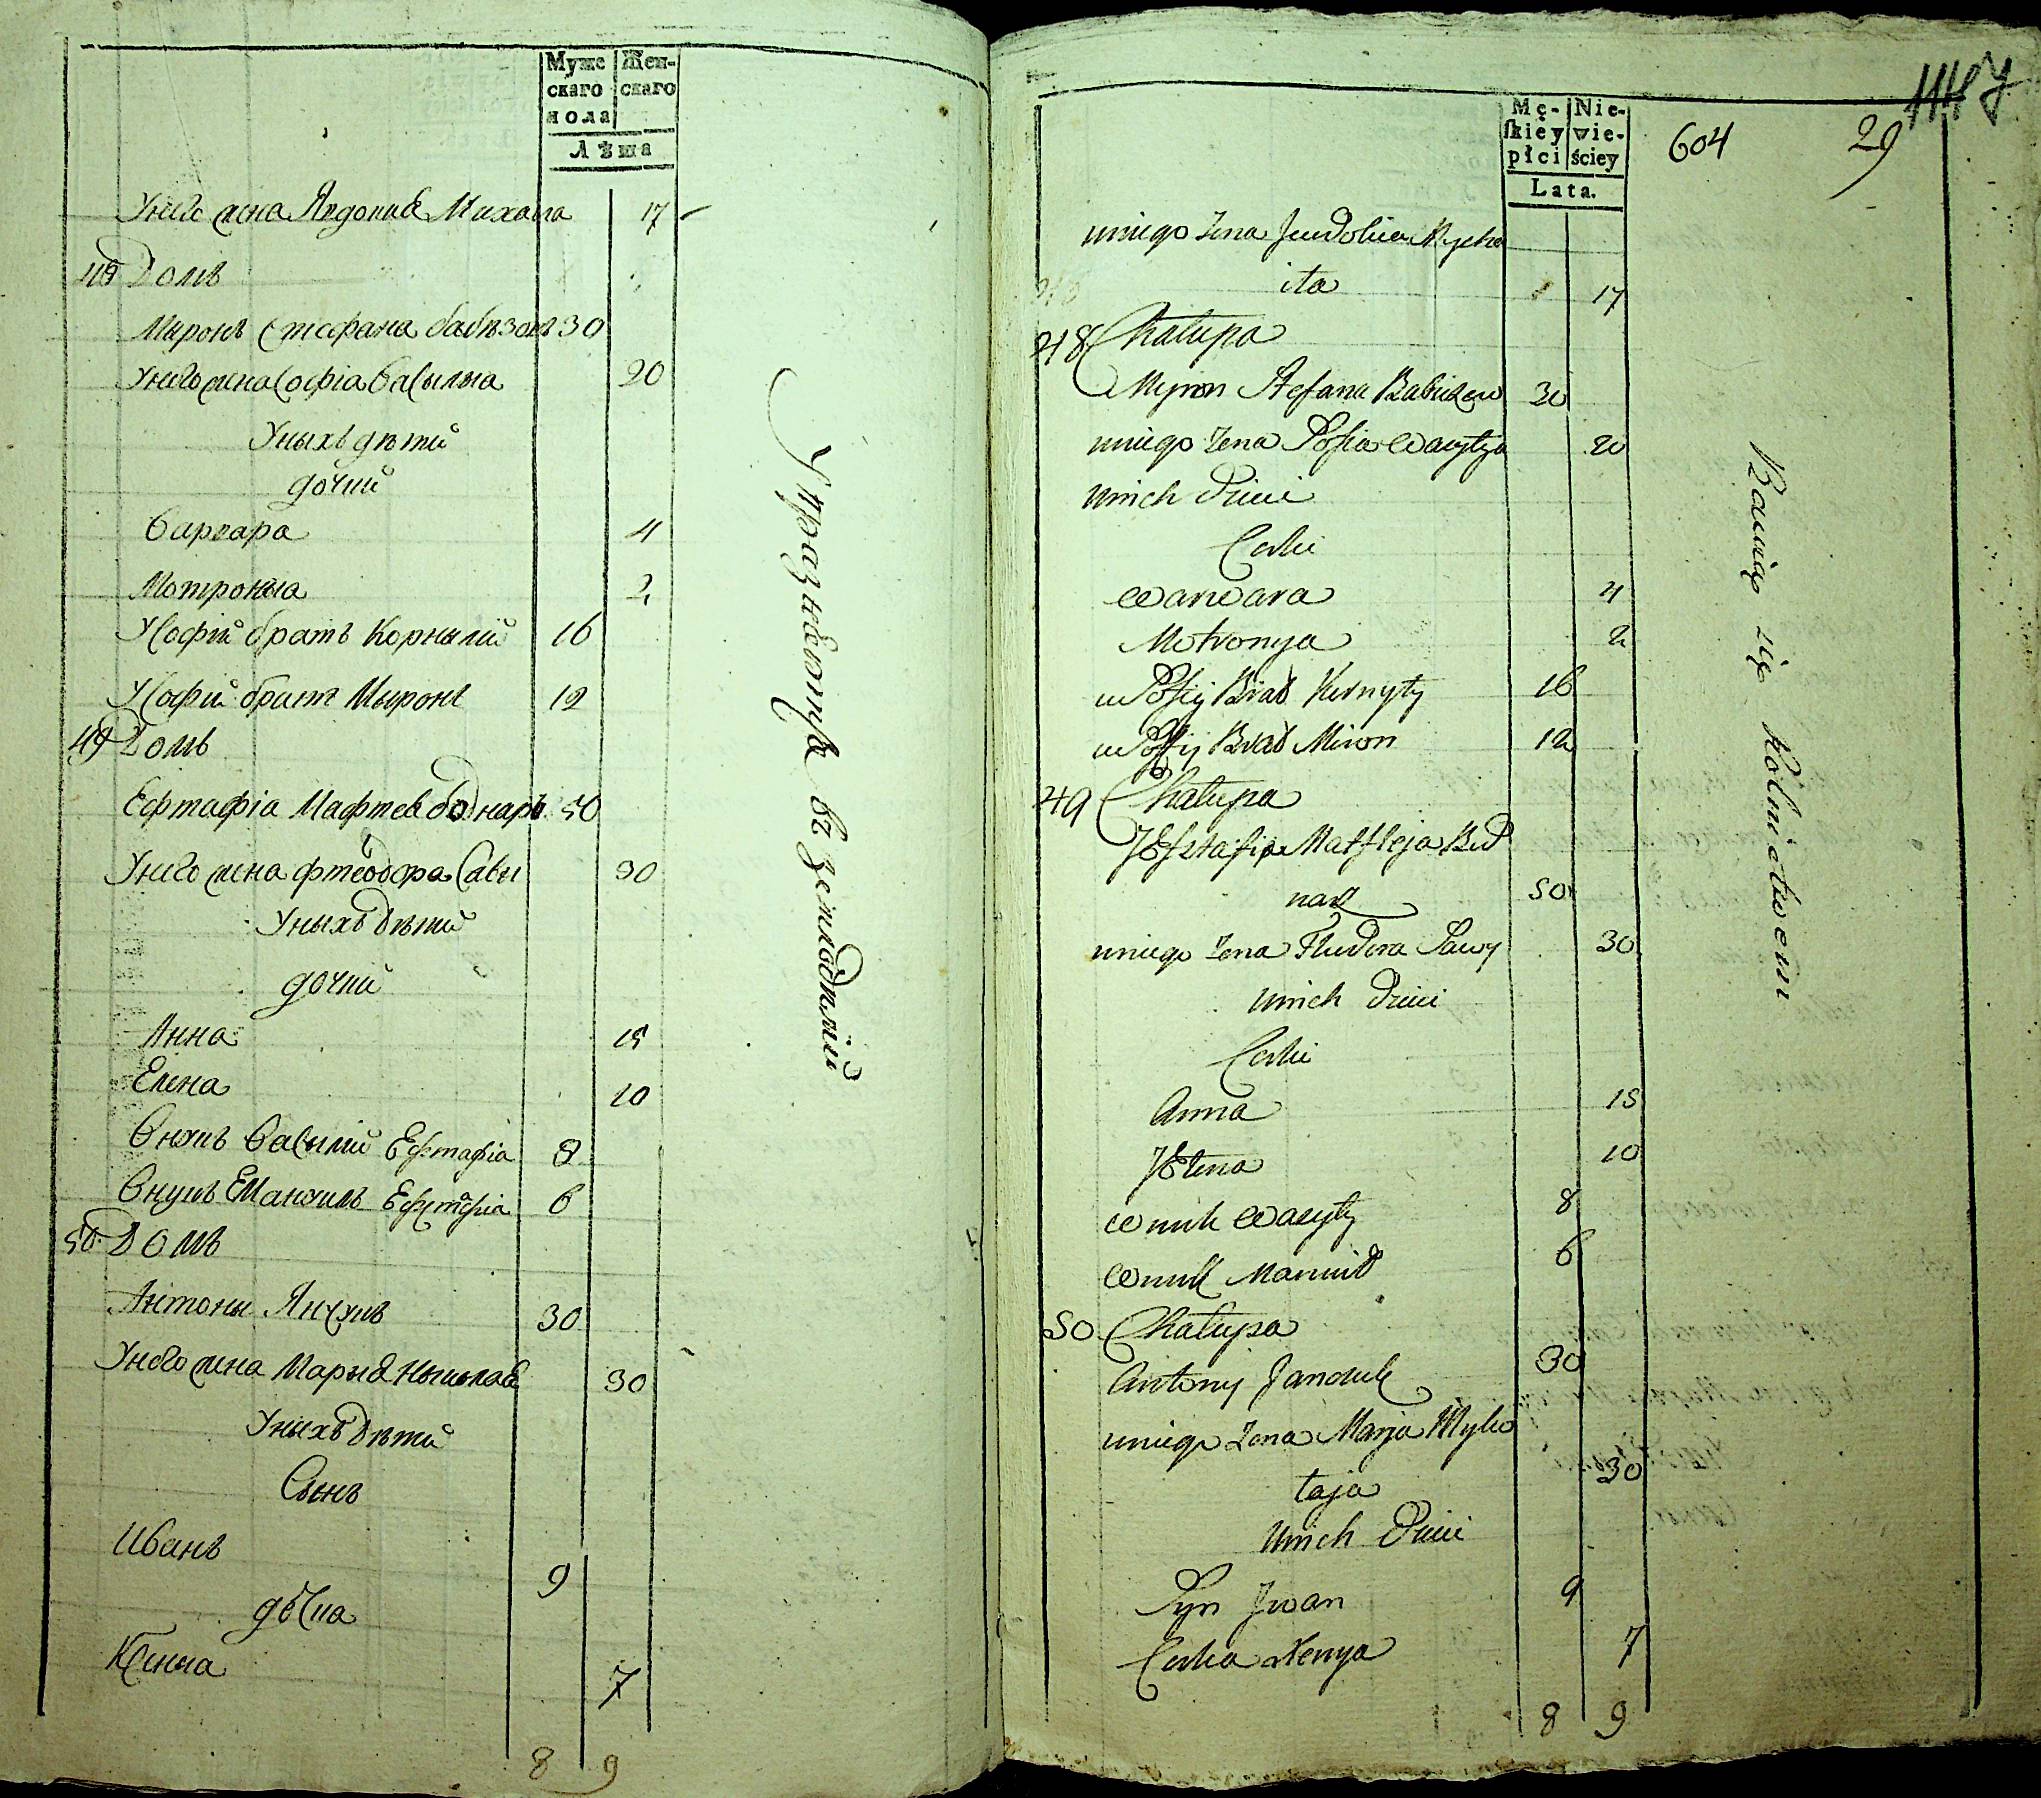 Муже Жен-
скаго скаго
пола
Лѣта
Унего жена Явдоха Михаила 17
48 Домъ
Миронъ Стефана Бабѣзонъ 30
Унего жена Софіа Васылыа 20
Уныхъ дѣтий
дочки
Варвара 4
Мотроныа 2
У Софій братъ Корнылий 16
У Софій братъ Мыронъ 12
49 Домъ
Ефтафіа Мафтея Боднаръ 50
Унего жена Фтеодора Савы 30
Уныхъ дѣтий
дочки
Анна 15
Елена 10
Внукъ Васылий Ефтафіа 8
Внукъ Мануилъ Ефтафіа 6
50 Домъ
Антоны Янчукъ 30
Унего жена Марыя Ныколая 30
Уныхъ дѣтий
Сынъ
Иванъ 9
дочка
Ксеныа 7
8 9
Упразнѣютця въ земледѣлий
1147
Mę- Nie-
ſkiey wie-
płci ściey
Lata.
604 29
uniego Żona Jewdokia Mycha
iła 17
48 Chałupa
Myron Stefana Babiczew 30
uniego Żona Sofia Wasylja 20
unich Dzieci
Corki
Warwara 4
Motronya 2
u Sofij Brad Kornyły 16
u Sofij Brad Miron 12
49 Chałupa
Jefstafija Maftteja Bod
nar 50
uniego Żona Ftudora Sawy 30
unich Dzieci
Corki
Anna 15
Jelena 10
Wnuk Wasyly 8
Wnuk Manuil 6
50 Chałupa
Antony Janczuk 30
uniego Żona Marja Myko
łaja 30
Unich Dzieci
Syn Jwan 9
Corka Xenya 7
8 9
Bawią się Rolnictwem